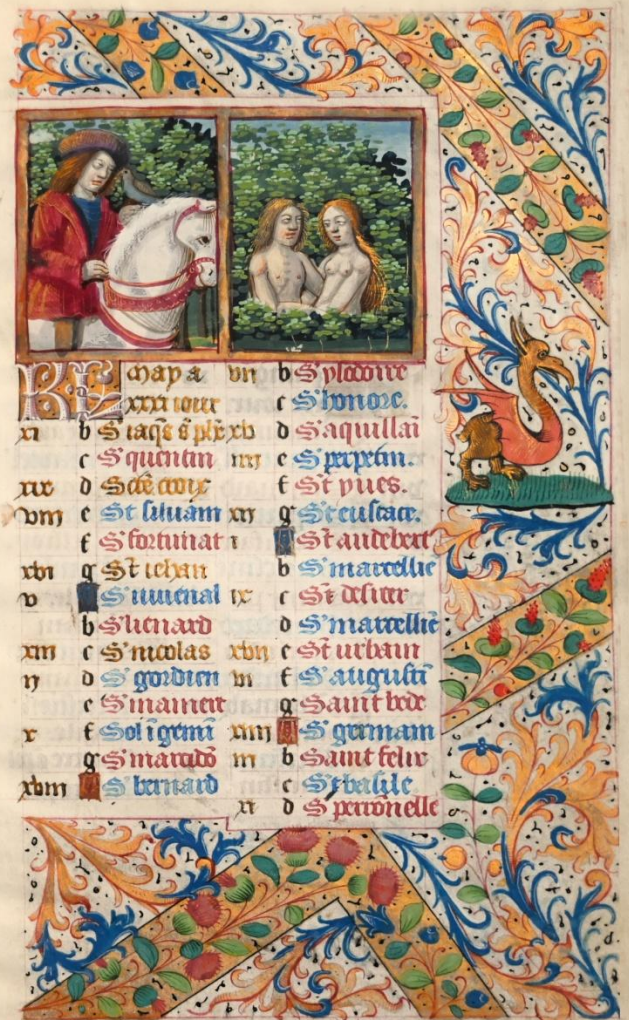 KL May a
xxxi iour
xi b S iaqs s phe
c S quentin
xix d S cte croix
viii e St siluain
f S fortunat
xvi g St iehan
v S iuuenal
b S lienard
xiii c S nicolas
ii d S gordien
e S mamert
x f Sol i gemi
g S
xviii S bernard
vii b S
c S honore.
xv d S aquillan
iiii e S perpetin.
f St yues.
xii g St eustace.
i St audebert
b S marcellie
ix c St desirer
d S marcellie
xvii e St urbain
vi f S augusti
g Saint bede
xiiii S germain
iii b Saint felix
c S basile
xi d S perronelle